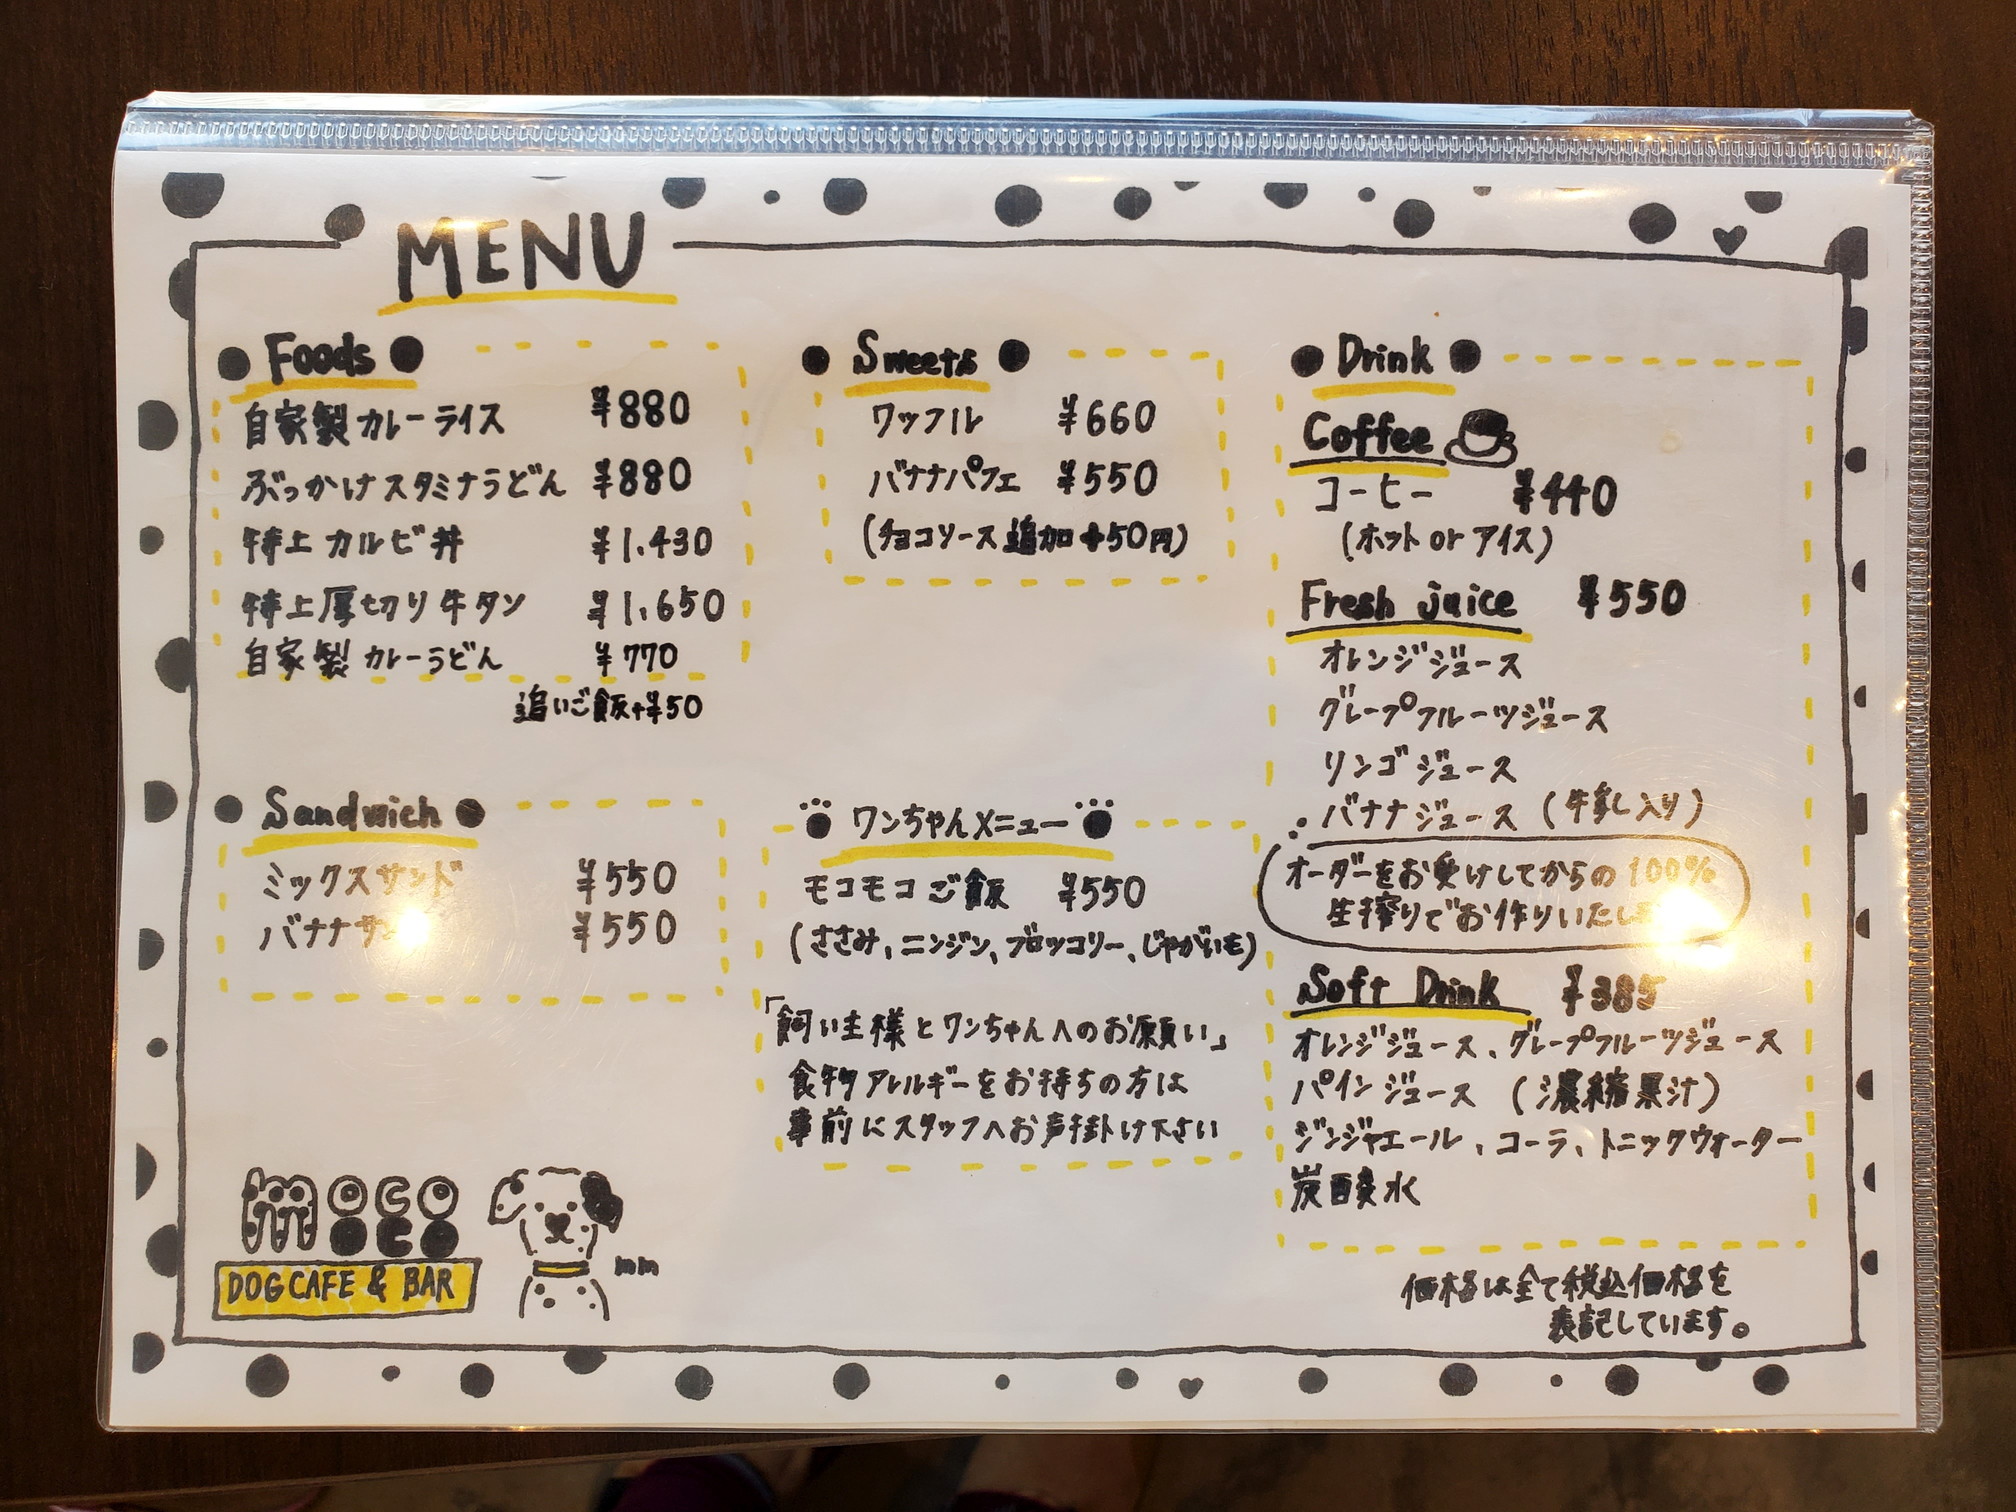 MENU
Foods
自家製カレーライス ¥880
ぶっかけスタミナうどん ¥880
特上カルビ丼 ¥1,430
特上厚切り牛タン ¥1,650
自家製カレーうどん ¥770
追いご飯+¥50
Sandwich
ミックスサンド ¥550
バナナサ ¥550
moco
moco
DOG CAFE & BAR
Sweets
ワッフル ¥660
バナナパフェ ¥550
(チョコソース追加+50円)
ワンちゃんメニュー
モコモコご飯 ¥550
(ささみ、ニンジン、ブロッコリー、じゃがいも)
「飼い主様とワンちゃんへのお願い」
食物アレルギーをお持ちの方は
事前にスタッフへお声掛け下さい
Drink
Coffee
コーヒー ¥440
(ホット or アイス)
Fresh juice ¥550
オレンジジュース
グレープフルーツジュース
リンゴジュース
バナナジュース (牛乳入り)
オーダーをお受けしてからの100%
生搾りでお作りいたし
Soft Drink ¥385
オレンジジュース、グレープフルーツジュース
パインジュース (濃縮果汁)
ジンジャエール、コーラ、トニックウォーター
炭酸水
価格は全て税込価格を
表記しています。